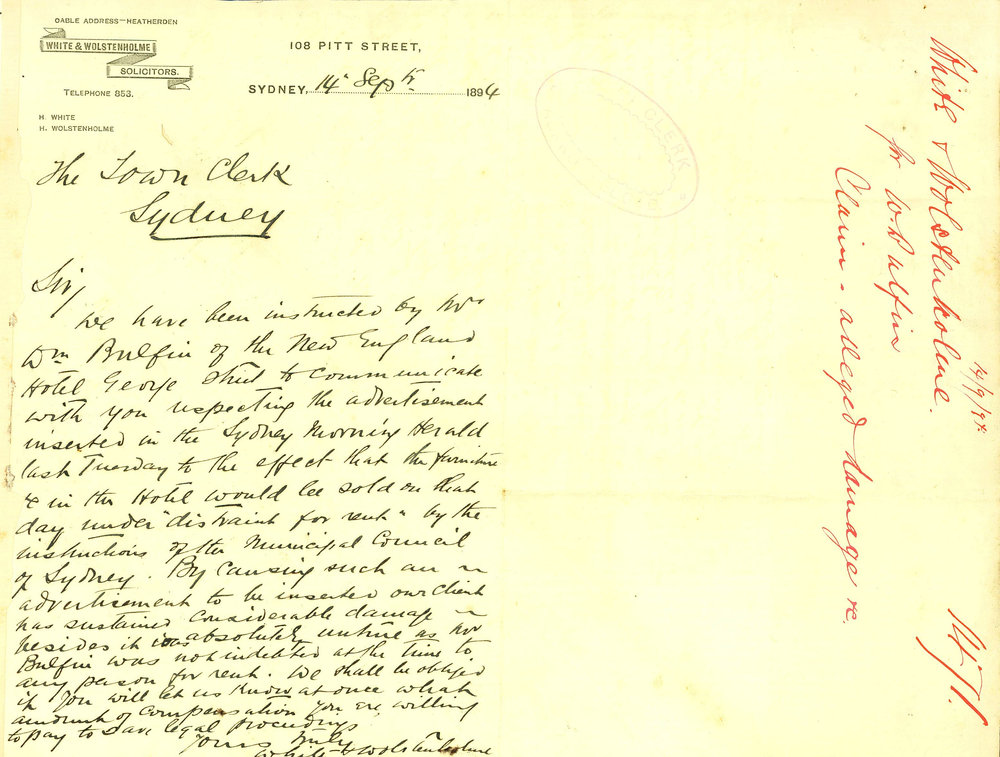 CABLE ADDRESS—HEATHERDEN
WHITE & WOLSTENHOLME
SOLICITORS.
TELEPHONE 853.
H. WHITE
H. WOLSTENHOLME
108 PITT STREET,
SYDNEY, 14 Sepr 1894
CLERK
The Town Clerk
Sydney
Sir,
We have been instructed by Mr
Wm Bulfin of the New England
Hotel George Street to communicate
with you respecting the advertisement
inserted in the Sydney Morning Herald
last Tuesday to the effect that the furniture
&c in the Hotel would be sold on that
day under "distraint for rent" by the
instructions of the Municipal Council
of Sydney. By causing such an
advertisement to be inserted our client
has sustained considerable damage
besides it was absolutely untrue as Mr
Bulfin was not indebted at the time to
any person for rent. We shall be obliged
if you will let us know at once what
amount of compensation you are willing
to pay to save legal proceedings
Yours truly
White & Wolstenholme
White & Wolstenholme.
14/9/94.
for W. Bulfin
Claim - alleged damage &c.